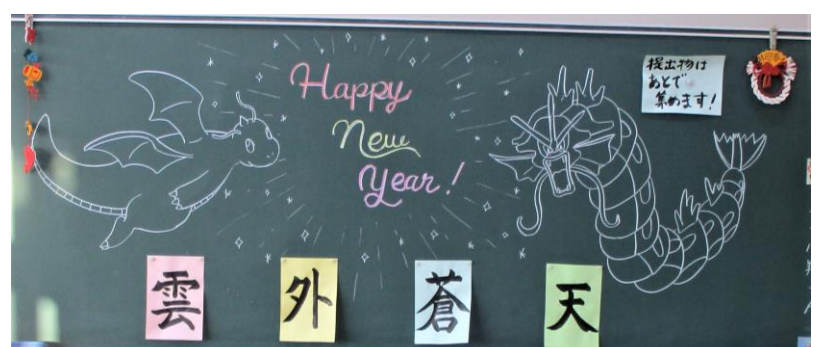 Happy
New
Year!
提出物は
あとで
集めます!
雲外蒼天